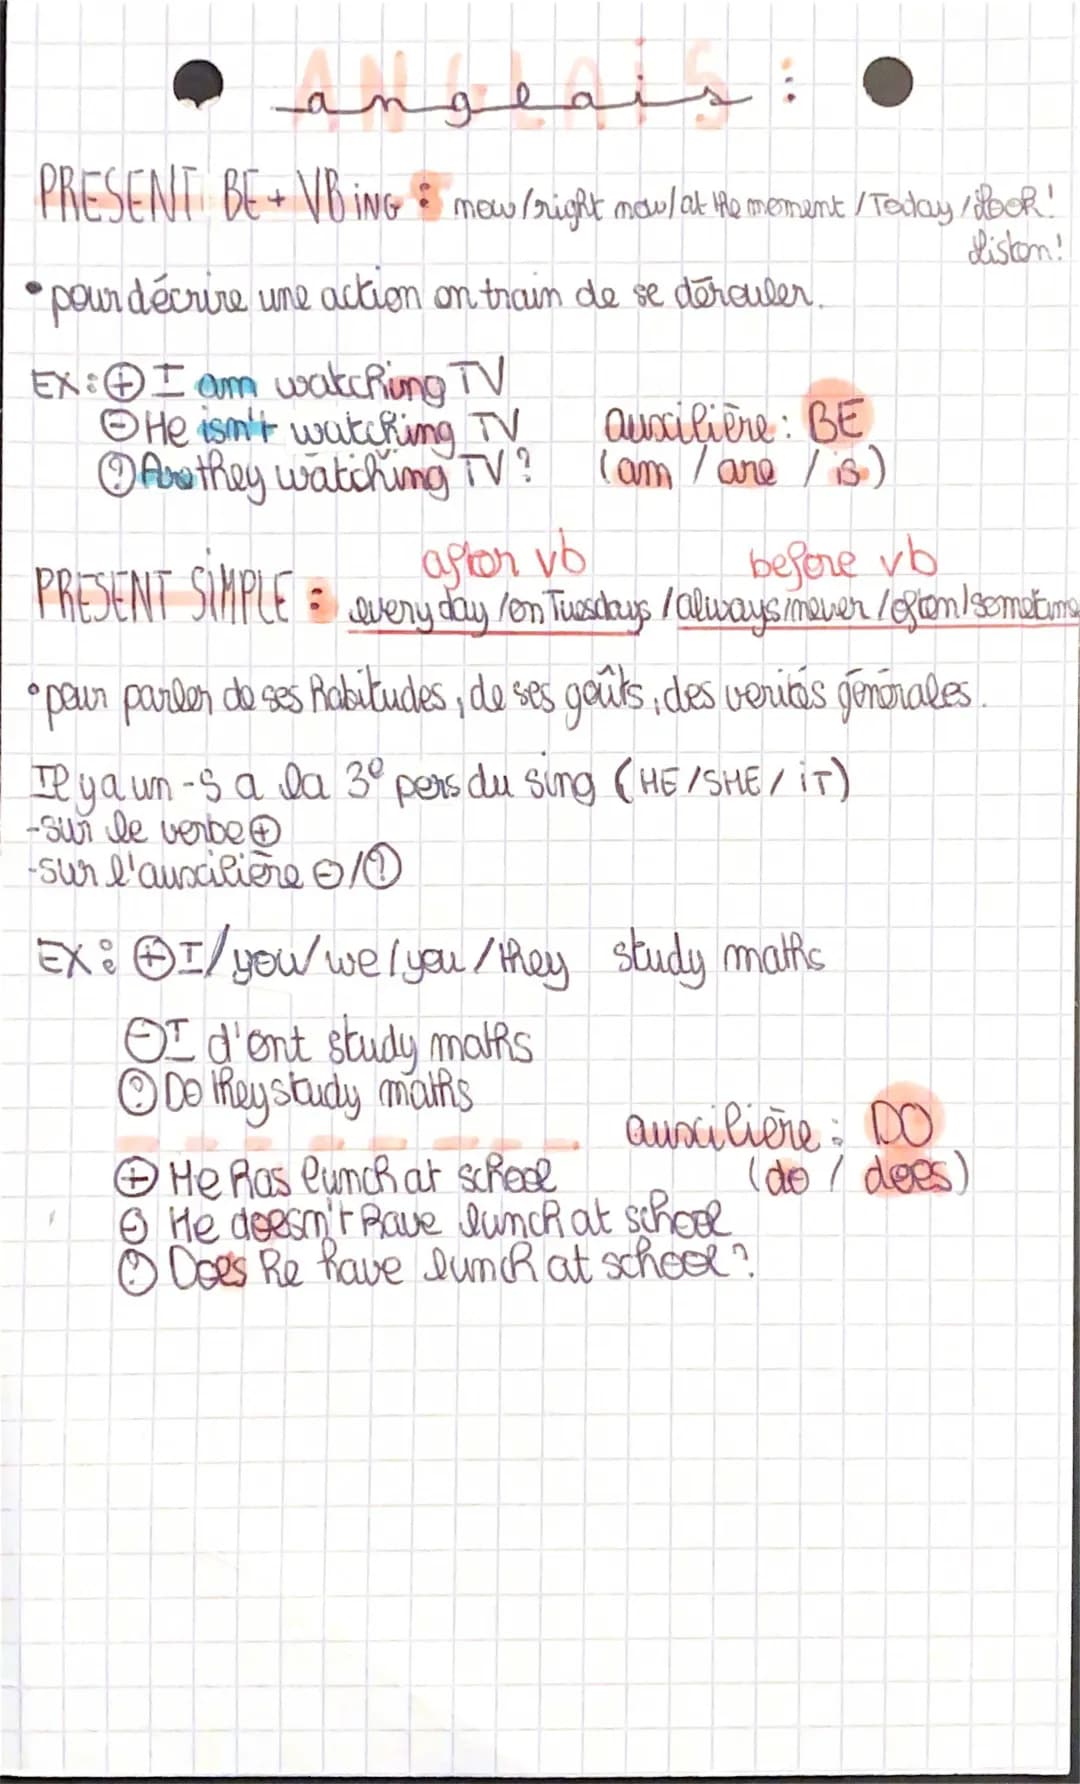 ANGLAIS :
anglais
PRESENT BE + VB ING : now / right now / at the moment / Today / Look!
Listen!
• pour décrire une action en train de se dérouler.
EX : + I am watching TV
- He isn't watching TV auxilière : BE
? Are they watching TV ? (am / are / is)
after vb before vb
PRESENT SIMPLE : every day / on Tuesdays / always / never / often / sometime
• pour parler de ses habitudes, de ses goûts, des verités génerales.
Il y a un -s a la 3e pers du sing (HE / SHE / iT)
- sur le verbe +
- sur l'auxilière - / ?
EX : + I / you / we / you / they study maths
- I d'ont study maths
? Do they study maths
auxilière : DO
+ He has lunch at school (do / does)
- He doesn't have lunch at school
? Does he have lunch at school ?